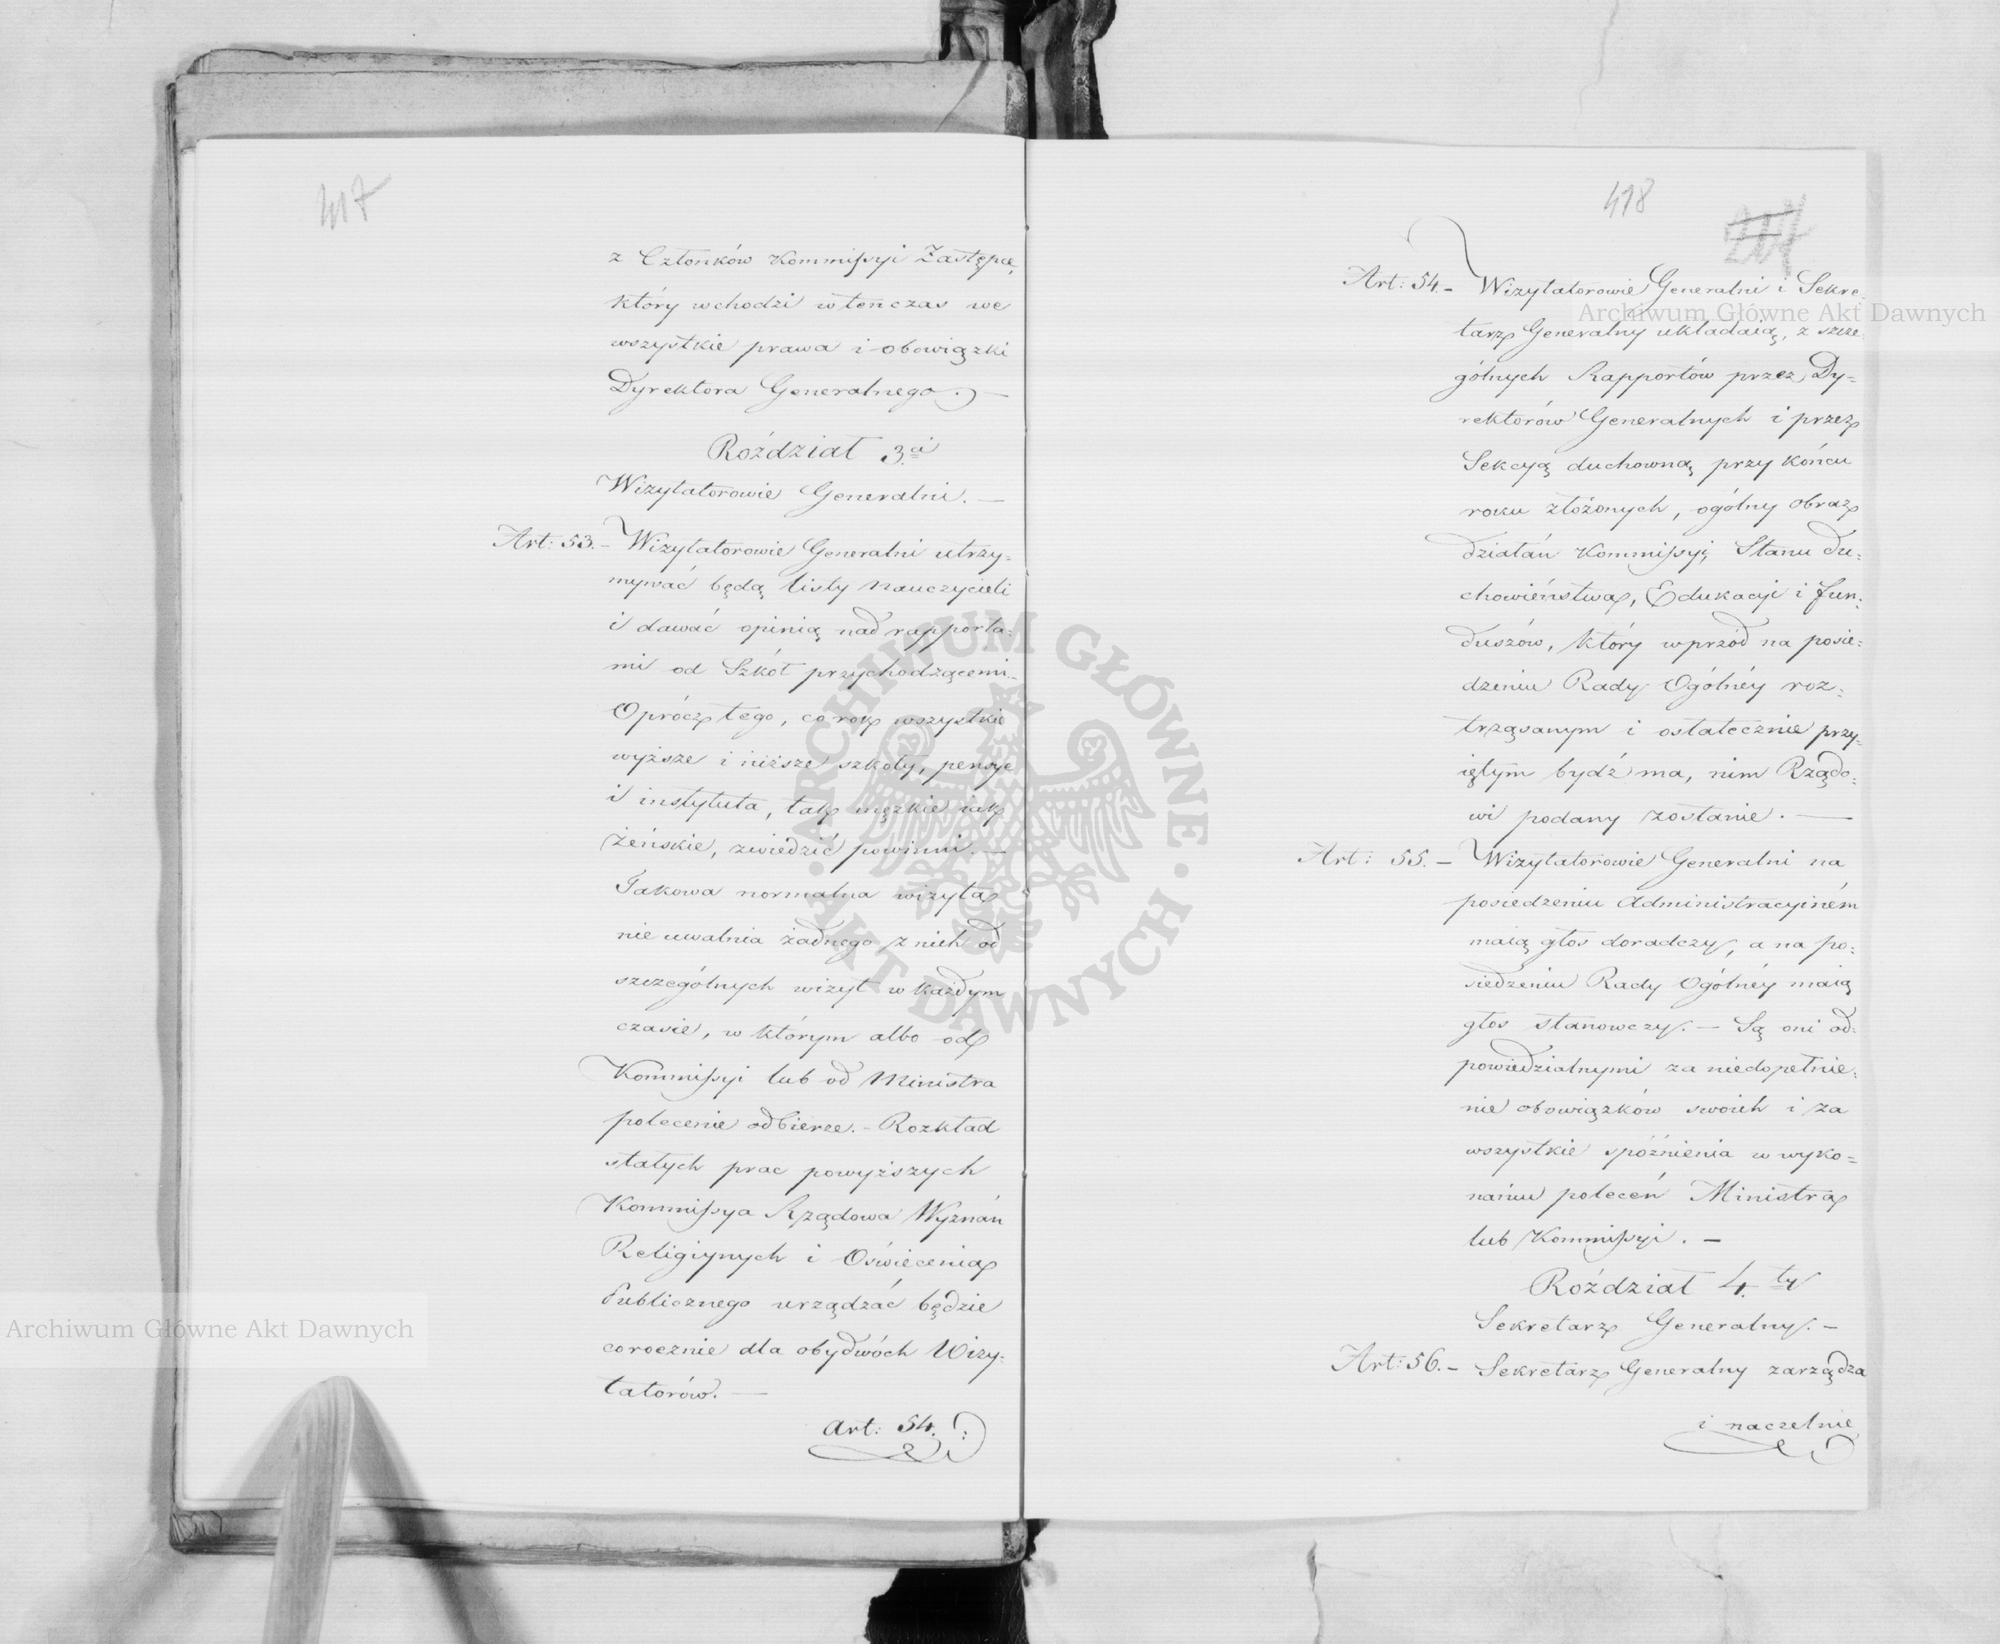 417
z Członków Kommissyi Zastępcę,
który wchodzi wtenczas we
wszystkie prawa i obowiązki
Dyrektora Generalnego. —
Roździał 3.ci
Wizytatorowie Generalni. —
Art: 53. – Wizytatorowie Generalni utrzy-
mywać będą listy nauczycieli
i dawać opinią nad rapporta-
mi od Szkół przychodzącemi. –
Oprócz tego, co rok wszystkie
wyższe i niższe szkoły, pensye
i instytuta, tak męzkie iak
żeńskie, zwiedzić powinni. —
Takowa normalna wizyta
nie uwalnia żadnego z nich od
szczególnych wizyt w każdym
czasie, w którym albo od
Kommissyi lub od Ministra
polecenie odbierze. – Rozkład
stałych prac powyższych
Kommissya Rządowa Wyznań
Religiynych i Oświecenia
Publicznego urządzać będzie
corocznie dla obydwóch Wizy-
tatorów. —
Art: 54. :
418
217
Art: 54. – Wizytatorowie Generalni i Sekre-
tarz Generalny układaią, z szcze-
gólnych Rapportów przez Dy-
rektorów Generalnych i przez
Sekcyą duchowną przy końcu
roku złożonych, ogólny obraz
działań Kommissyi, Stanu du-
chowieństwa, Edukacyi i fun-
duszów, który wprzód na posie-
dzeniu Rady Ogólnéy roz-
trząsanym i ostatecznie przy-
iętym bydź ma, nim Rządo-
wi podany zostanie. —
Art: 55. – Wizytatorowie Generalni na
posiedzeniu Administracyiném
maią głos doradczy, a na po-
siedzeniu Rady Ogólnéy maią
głos stanowczy. – Są oni od-
powiedzialnymi za niedopełnie-
nie obowiązków swoich i za
wszystkie spóźnienia w wyko-
naniu poleceń Ministra
lub Kommissyi. –
Roździał 4.ty
Sekretarz Generalny. –
Art: 56. – Sekretarz Generalny zarządza
i naczelnie
Archiwum Główne Akt Dawnych
Archiwum Główne Akt Dawnych
ARCHIWUM GŁÓWNE · AKT DAWNYCH ·